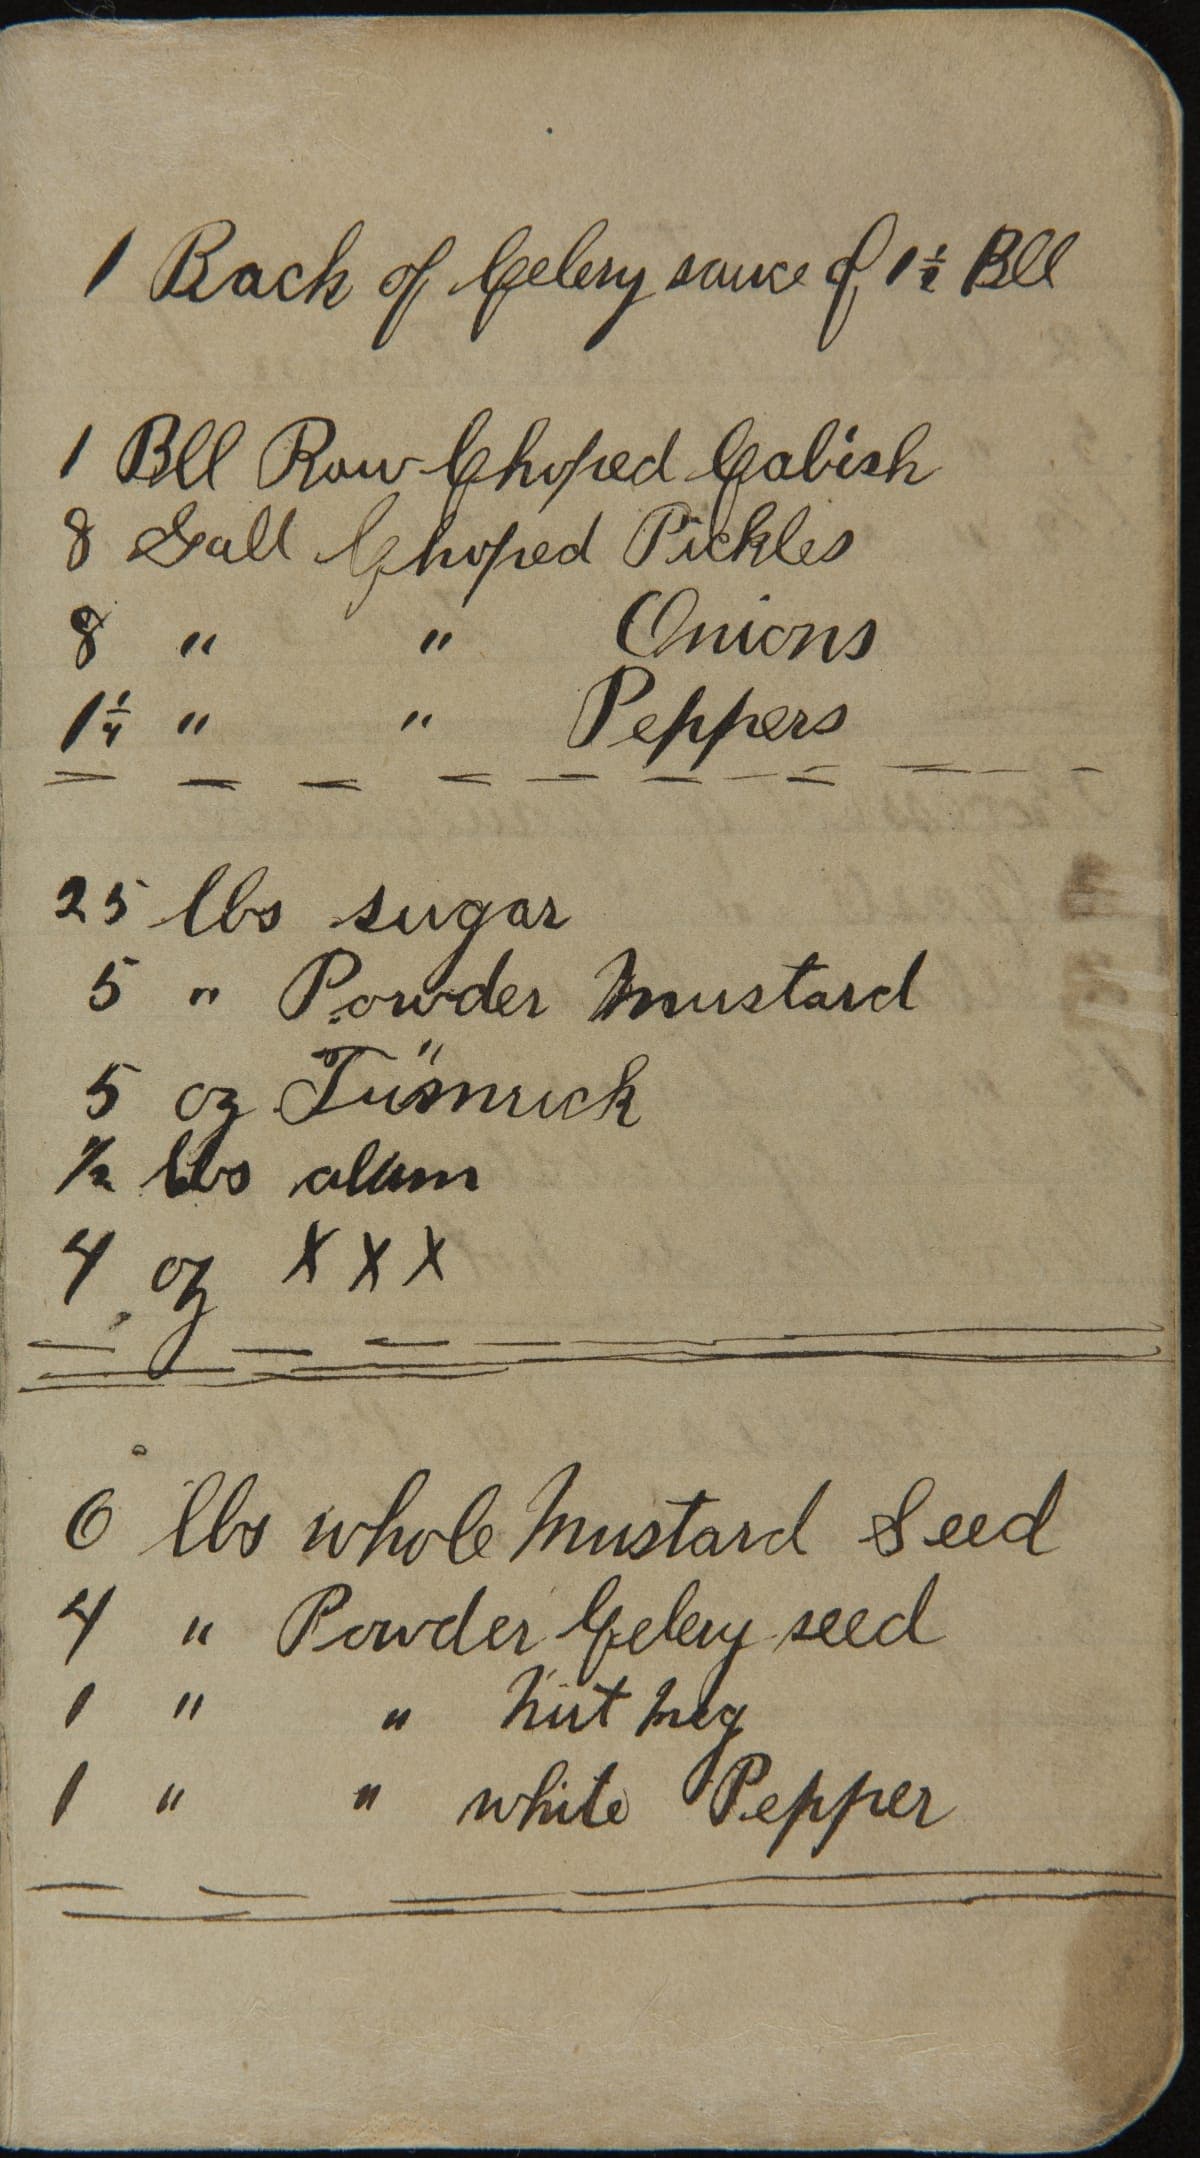 1 Back of Celery sauce of 1 1/2 Bll
1 Bll Raw Choped Cabish
8 Gall Choped Pickles
8 " " Onions
1 1/4 " " Peppers
25 lbs sugar
5 " Powder Mustard
5 oz Tümrick
1/2 lbs alum
4 oz XXX
6 lbs whole Mustard Seed
4 " Powder Celery seed
1 " " Nut Meg
1 " " white Pepper